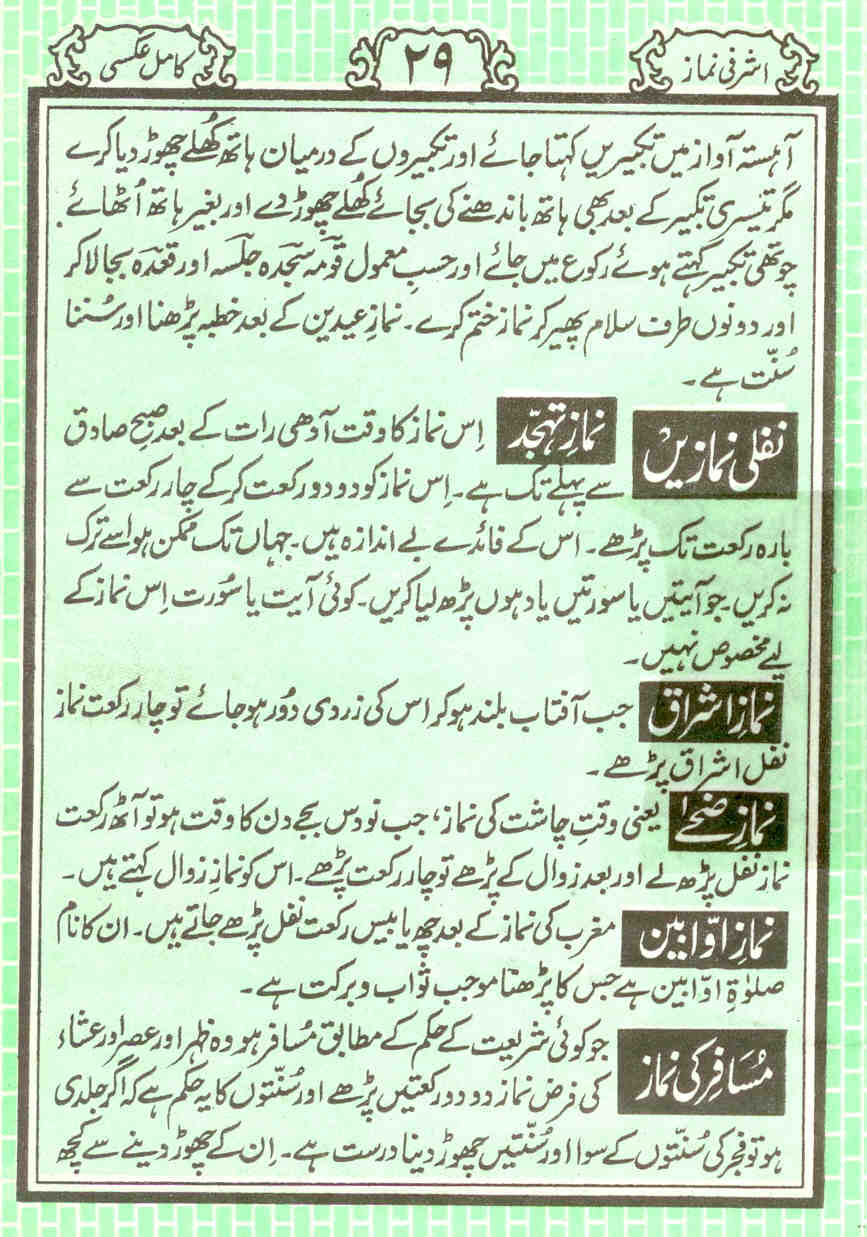 اشرفی نماز
۲۹
کامل عکسی
آہستہ آواز میں تکبیریں کہتا جائے اور تکبیروں کے درمیان ہاتھ کُھلے چھوڑ دیا کرے
مگر تیسری تکبیر کے بعد بھی ہاتھ باندھنے کی بجائے کُھلے چھوڑ دے اور بغیر ہاتھ اُٹھائے
چوتھی تکبیر کہتے ہوئے رکوع میں جائے اور حسبِ معمول قومہ سجدہ جلسہ اور قعدہ بجا لا کر
اور دونوں طرف سلام پھیر کر نماز ختم کرے۔ نمازِ عیدین کے بعد خطبہ پڑھنا اور سُننا
سُنّت ہے۔
نفلی نمازیں
نمازِ تہجّد اِس نماز کا وقت آدھی رات کے بعد صبح صادق
سے پہلے تک ہے۔ اِس نماز کو دو دو رکعت کر کے چار رکعت سے
بارہ رکعت تک پڑھے۔ اس کے فائدے بے اندازہ ہیں۔ جہاں تک ممکن ہو اسے ترک
نہ کریں۔ جو آیتیں یا سورتیں یاد ہوں پڑھ لیا کریں۔ کوئی آیت یا سُورت اِس نماز کے
لیے مخصوص نہیں۔
نمازِ اشراق جب آفتاب بلند ہو کر اس کی زردی دُور ہو جائے تو چار رکعت نماز
نفل اشراق پڑھے۔
نمازِ ضحےٰ یعنی وقتِ چاشت کی نماز، جب نو دس بجے دن کا وقت ہو تو آٹھ رکعت
نماز نفل پڑھ لے اور بعد زوال کے پڑھے تو چار رکعت پڑھے۔ اس کو نمازِ زوال کہتے ہیں۔
نمازِ اوّابین مغرب کی نماز کے بعد چھ یا بیس رکعت نفل پڑھے جاتے ہیں۔ ان کا نام
صلوٰۃِ اوّابین ہے جس کا پڑھنا موجب ثواب و برکت ہے۔
مُسَافِر کی نماز جو کوئی شریعت کے حکم کے مطابق مُسافر ہو وہ ظہر اور عصر اور عشاء
کی فرض نماز دو دو رکعتیں پڑھے اور سُنّتوں کا یہ حکم ہے کہ اگر جلدی
ہو تو فجر کی سُنّتوں کے سوا اور سُنّتیں چھوڑ دینا درست ہے۔ اِن کے چھوڑ دینے سے کچھ